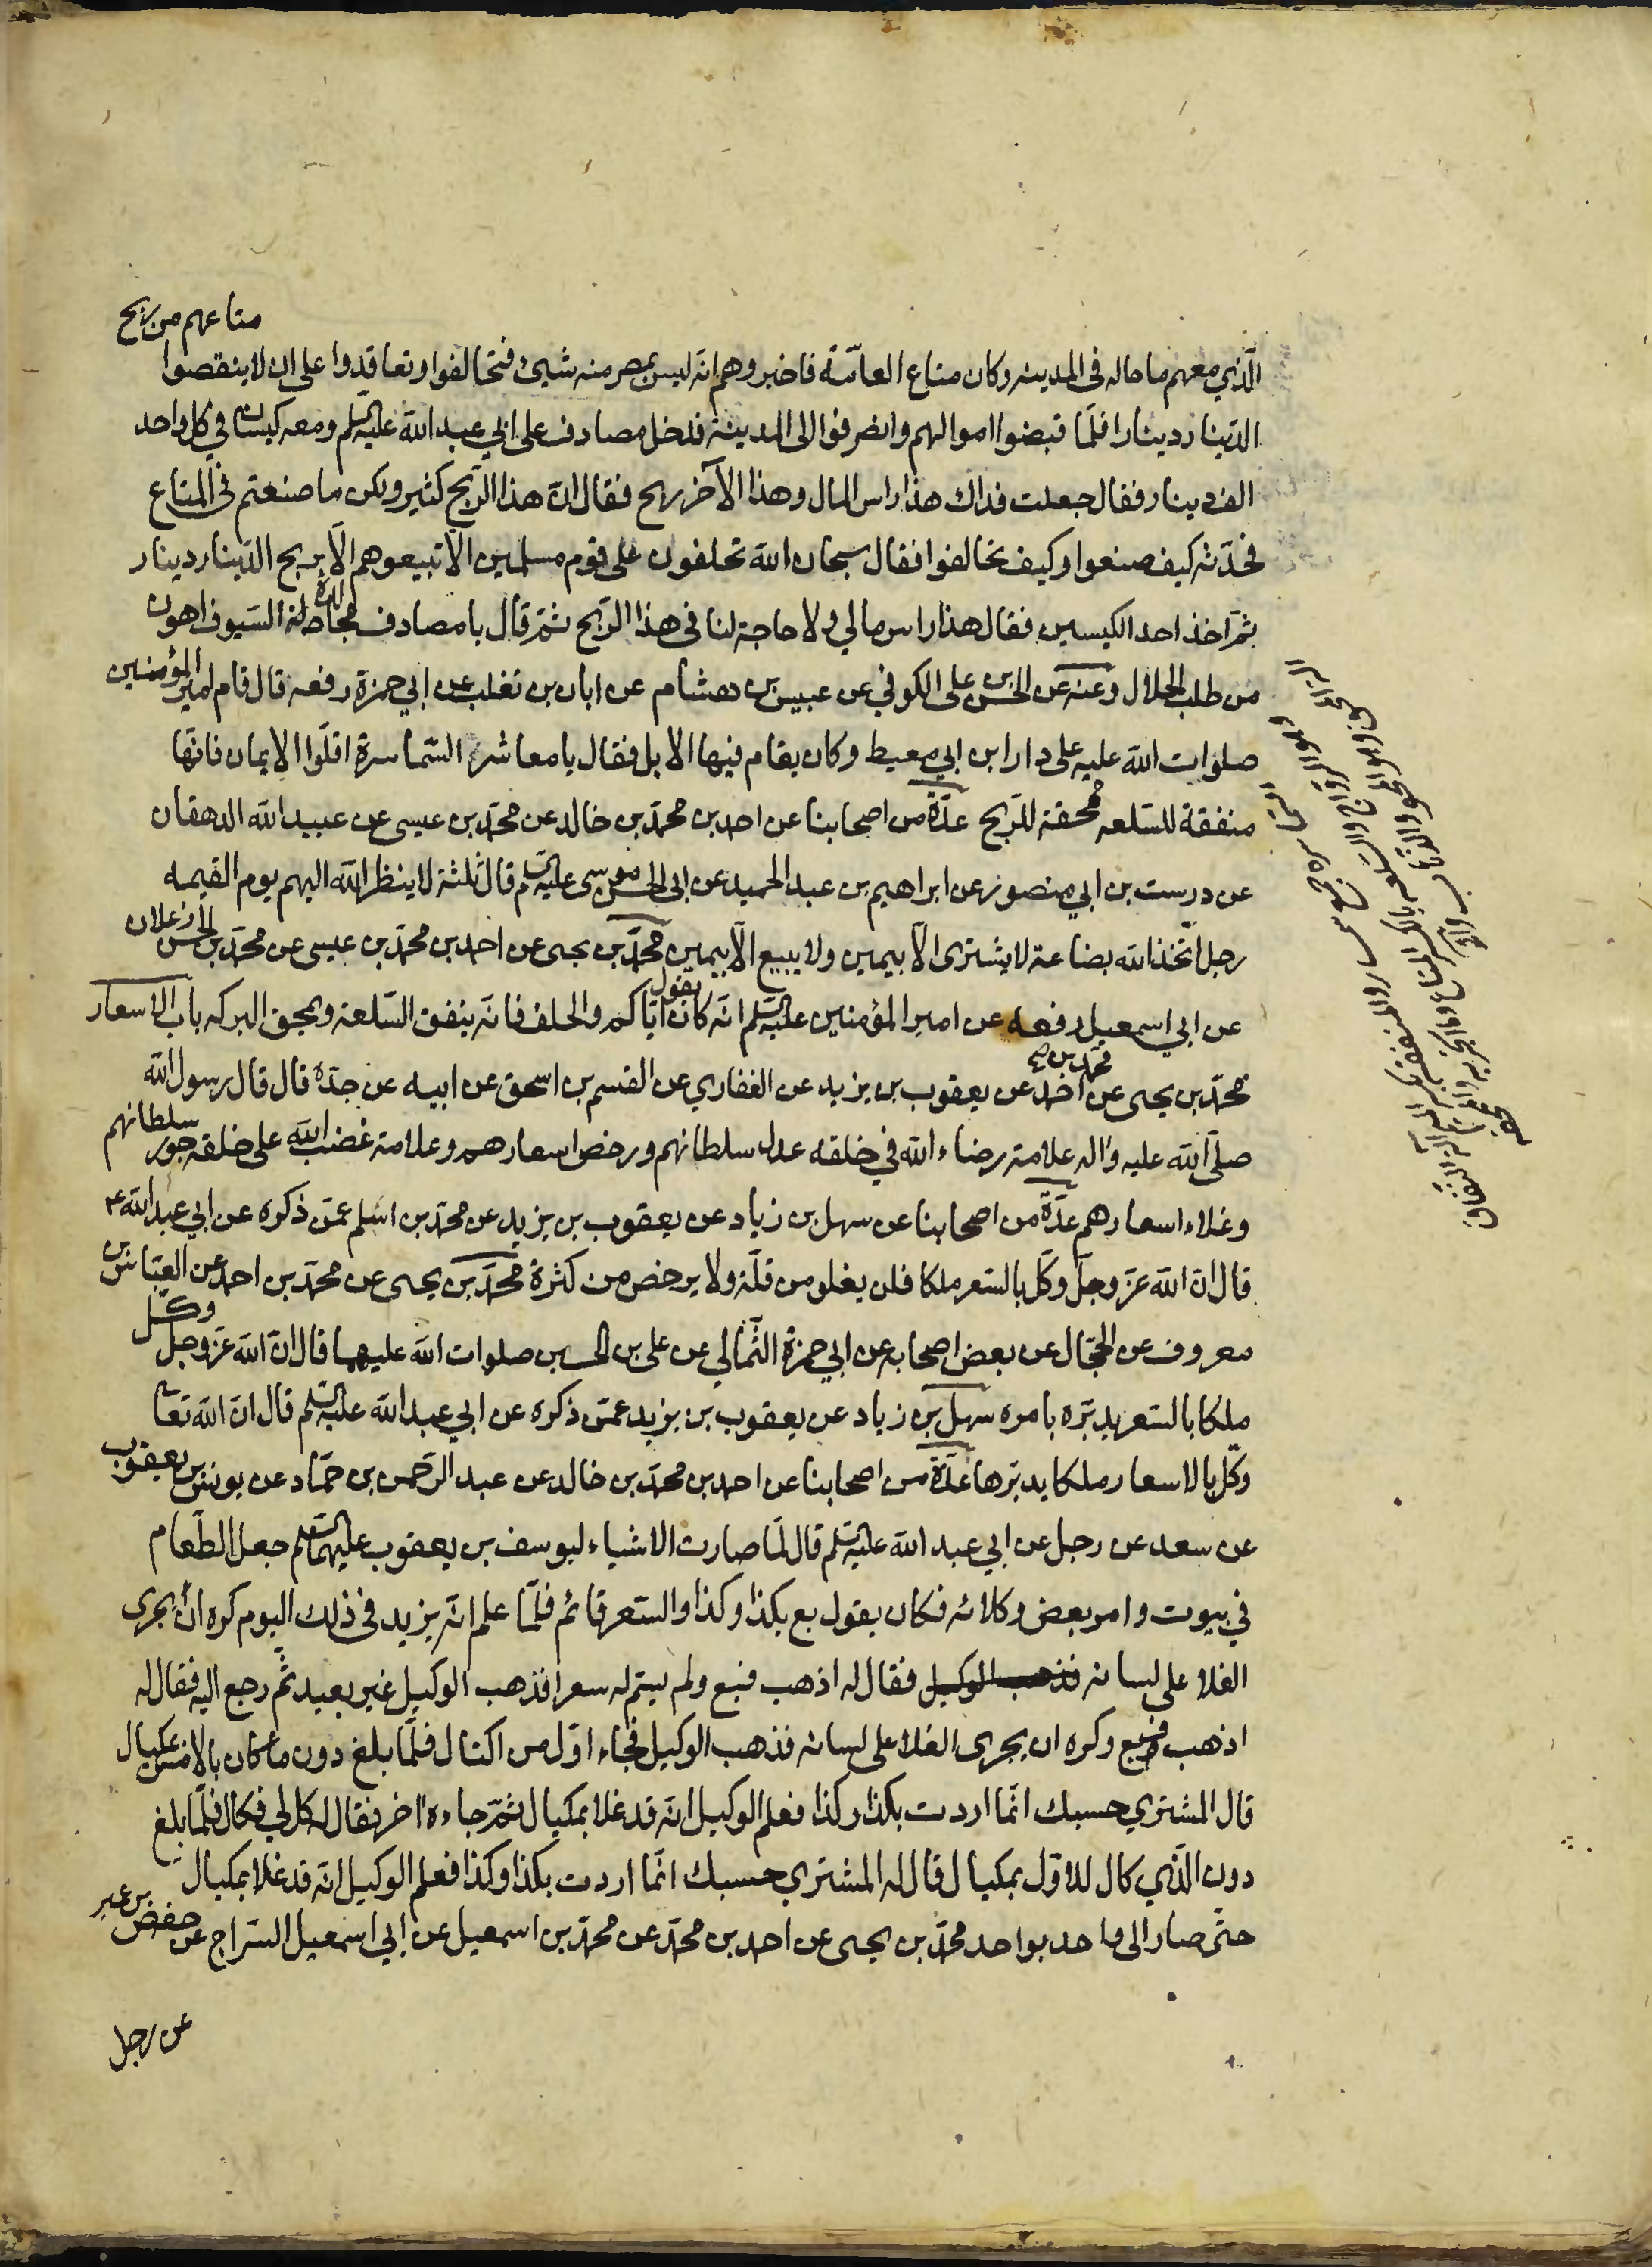 الّذي معهم ما حاله في المدينه وكان متاع العامّة فاخبروهم انّه ليس بمصر منه شيئ فتحالفوا وتعاقدوا على ان لا ينقصوا متاعهم من ربح
الدّينار دينارا فلمّا قبضوا اموالهم وانصرفوا الى المدينة فدخل مصادف على ابي عبد الله عليه السّلم ومعه كيسان في كلّ واحد
الف دينار فقال جعلت فداك هذا راس المال وهذا الآخر ربح فقال انّ هذا الرّبح كثير ولكن ما صنعتم في المتاع
فحدّثه كيف صنعوا وكيف تحالفوا فقال سبحان الله تحلفون على قوم مسلمين الّا تبيعوهم الّا بربح الدّينار دينار
ثمّ اخذ احد الكيسين فقال هذا راس مالي ولا حاجة لنا في هذا الرّبح ثمّ قال يا مصادف مجالدة السّيوف اهون
من طلب الحلال وعنه عن الحسن بن على الكوفي عن عبيس بن هشام عن ابان بن تغلب عن ابي حمزة رفعه قال قام امير المؤمنين
صلوات الله عليه على دار ابن ابي معيط وكان يقام فيها الابل فقال يا معاشر السّماسرة اقلّوا الايمان فانّها
منفقة للسّلعه ممحقة للرّبح عدّة من اصحابنا عن احمد بن محمّد بن خالد عن محمّد بن عيسى عن عبيد الله الدهقان
عن درست بن ابي منصور عن ابراهيم بن عبد الحميد عن ابى الحسن موسى عليه السّلم قال ثلثة لا ينظر الله اليهم يوم القيمه
رجل اتّخذ الله بضاعة لا يشترى الّا بيمين ولا يبيع الّا بيمين محمّد بن يحيى عن احمد بن محمّد بن عيسى عن محمّد بن الحسن زعلان
عن ابي اسمعيل رفعه عن امير المؤمنين عليه السّلم انّه كان يقول ايّاكم والحلف فانّه ينفق السّلعة ويمحق البركه باب الاسعار
محمّد بن يحيى عن احمد محمّد بن صح عن يعقوب بن يزيد عن الغفاري عن القسم بن اسحق عن ابيه عن جدّه قال قال رسول الله
صلّى الله عليه واله علامة رضاء الله في خلقه عدل سلطانهم ورخص اسعارهم وعلامة غضب الله على خلقه جور سلطانهم
وغلاء اسعارهم عدّة من اصحابنا عن سهل بن زياد عن يعقوب بن يزيد عن محمّد بن اسلم عمّن ذكره عن ابي عبد الله ع
قال انّ الله عزّ وجلّ وكّل بالسّعر ملكا فلن يغلو من قلّة ولا يرخص من كثرة محمّد بن يحيى عن محمّد بن احمد عن العبّاس بن
معروف عن الحجّال عن بعض اصحابه عن ابي حمزة الثّمالي عن على بن الحسين صلوات الله عليهما قال انّ الله عزّ وجلّ وكّل
ملكا بالسّعر يدبّره بامره سهل بن زياد عن يعقوب بن يزيد عمّن ذكره عن ابي عبد الله عليه السّلم قال انّ الله تعا
وكّل بالاسعار ملكا يدبّرها عدّة من اصحابنا عن احمد بن محمّد بن خالد عن عبد الرّحمن بن حمّاد عن يونس بن يعقوب
عن سعد عن رجل عن ابي عبد الله عليه السّلم قال لمّا صارت الاشياء ليوسف بن يعقوب عليهما السّلم جعل الطّعام
في بيوت وامر بعض وكلائه فكان يقول بع بكذا وكذا والسّعر قائم فلمّا علم انّه يزيد في ذلك اليوم كره ان يجرى
الغلا على لسانه فذهب الوكيل فقال له اذهب فبع ولم يسمّ له سعرا فذهب الوكيل غير بعيد ثمّ رجع اليه فقال له
اذهب فبع وكره ان يجرى الغلا على لسانه فذهب الوكيل فجاء اوّل من اكتال فلمّا بلغ دون ما كان بالامس بمكيال
قال المشتري حسبك انّما اردت بكذا وكذا فعلم الوكيل انّه قد غلا بمكيال ثمّ جاءه اخر فقال له كل لي فكال فلمّا بلغ
دون الّذي كال للاوّل بمكيال قال له المشتري حسبك انّما اردت بكذا وكذا فعلم الوكيل انّه قد غلا بمكيال
حتّى صار الى واحد بواحد محمّد بن يحيى عن احمد بن محمّد عن محمّد بن اسمعيل عن ابي اسمعيل السّراج عن حفص بن عمر
عن رجل